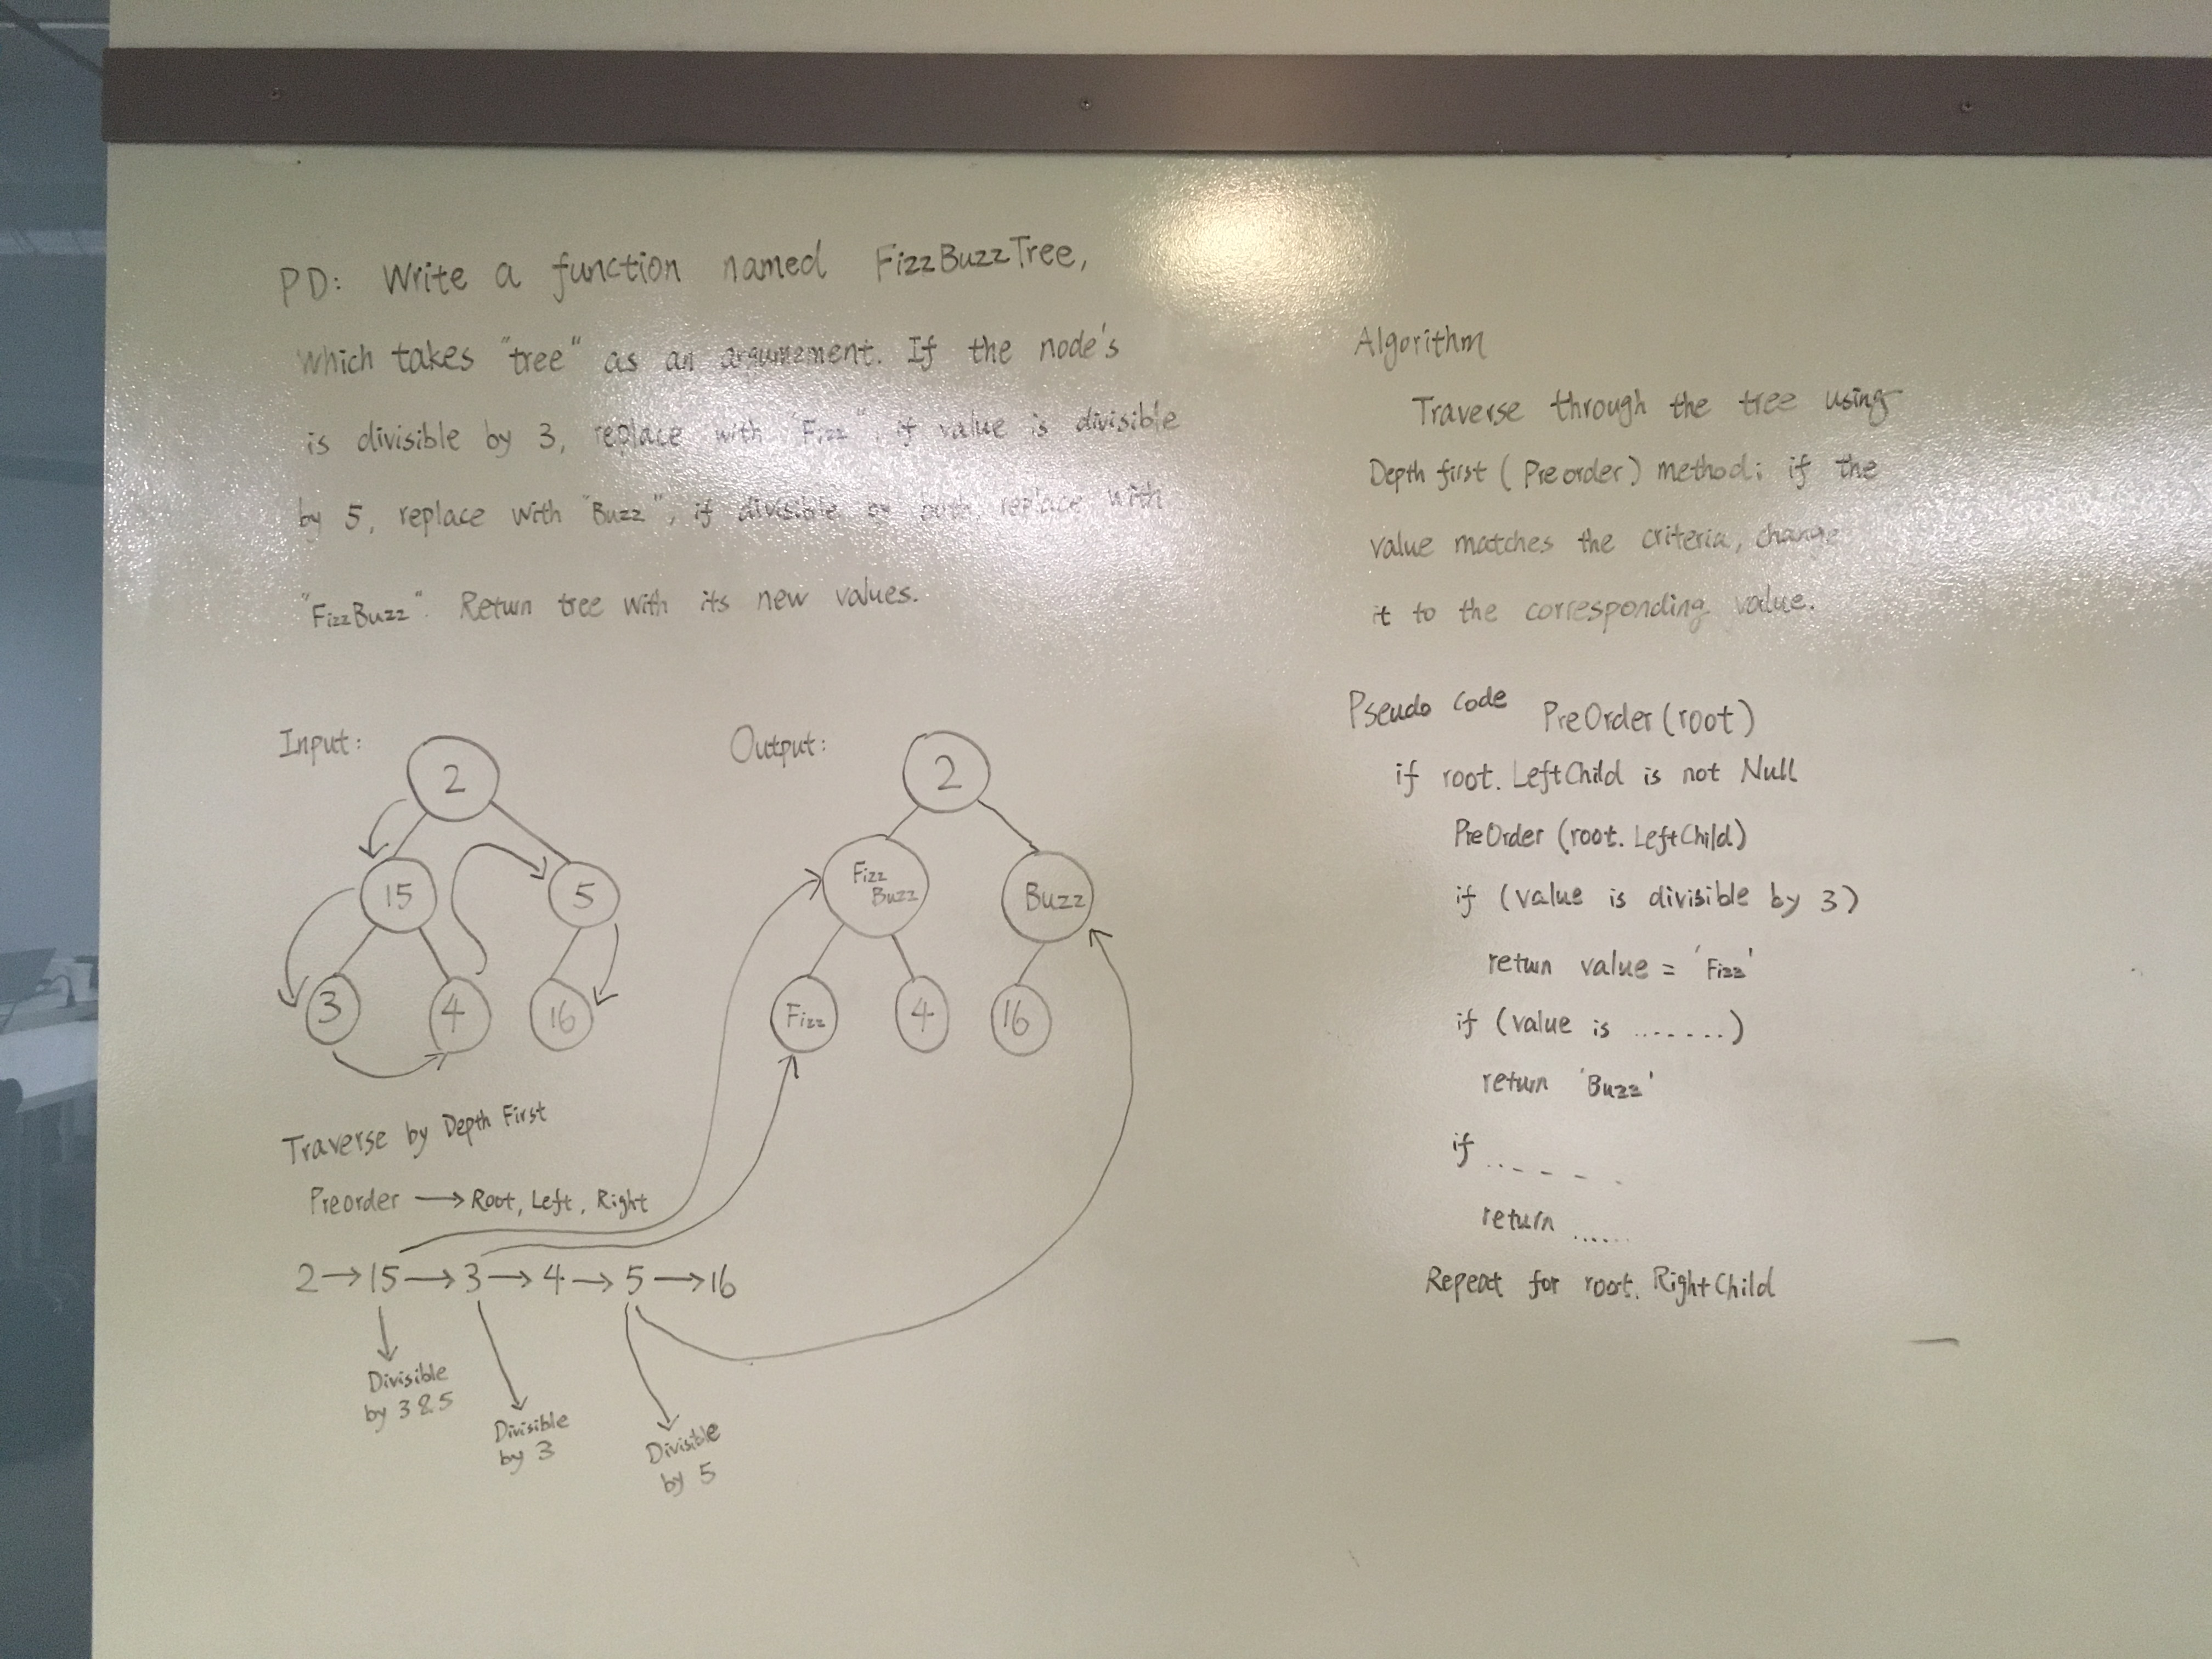 PD: Write a function named FizzBuzzTree,
which takes "tree" as an argumement. If the node's
is divisible by 3, replace with "Fizz", if value is divisible
by 5, replace with "Buzz", if divisible by both, replace with
"FizzBuzz". Return tree with its new values.
Input:
2
15
5
3
4
16
Traverse by Depth First
Preorder → Root, Left, Right
2 → 15 → 3 → 4 → 5 → 16
Divisible
by 3 & 5
Divisible
by 3
Divisible
by 5
Output:
2
Fizz
Buzz
Buzz
Fizz
4
16
Algorithm
Traverse through the tree using
Depth first (Preorder) method; if the
value matches the criteria, change
it to the corresponding value.
Pseudo Code PreOrder(root)
if root.LeftChild is not Null
PreOrder (root.LeftChild)
if (value is divisible by 3)
return value = 'Fizz'
if (value is .......)
return 'Buzz'
if .. - - - .
return .....
Repeat for root.RightChild